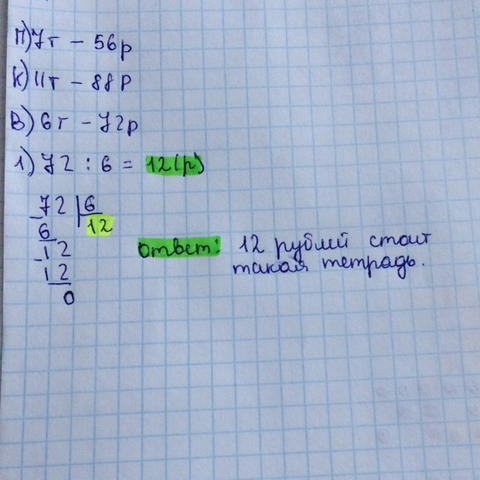 П) 7т - 56р
К) 11т - 88р
В) 6т - 72р
1) 72 : 6 = 12(р)
72 | 6
6 12
12
12
0
ответ: 12 рублей стоит
такая тетрадь.